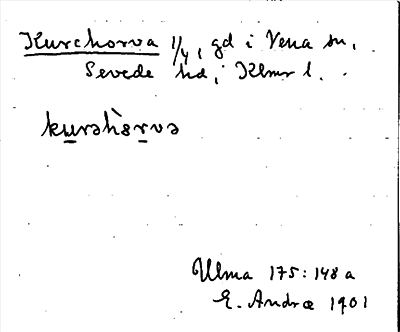 Kurehorva 1/4, gd i Vena sn,
Sevede hd, Klmr l.
kurəhàrvə
Ulma 175:148 a
E. Andræ 1901